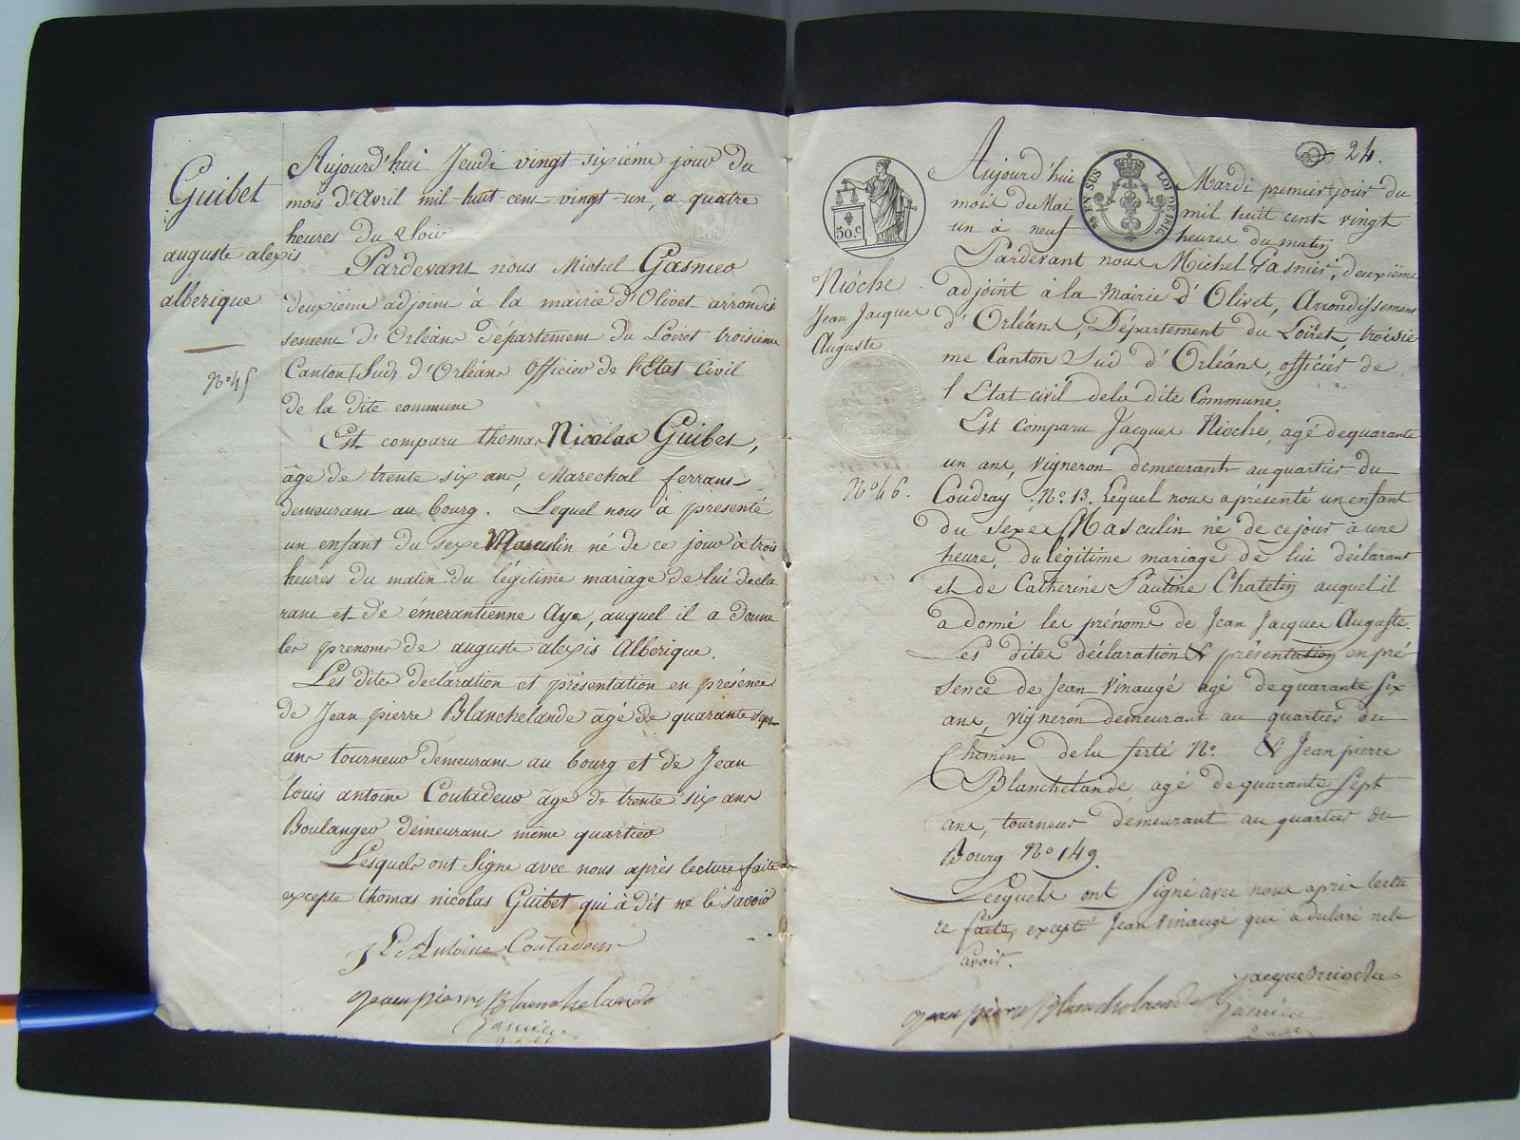 Guibet
auguste alexis
alberique
N° 45
Aujourd'hui Jeudi vingt sixiéme jour du
mois d'Avril mil huit cent vingt un, a quatre
heures du Soir
Pardevant nous Michel Gasnier
deuxiéme adjoint à la mairie d'Olivet arrondis
sement d'Orléans département du Loiret troisieme
Canton (Sud) d'Orléans Officier de l'Etat Civil
de la dite commune
Est comparu thomas Nicolas Guibet,
âge de trente six ans, Marechal ferrant
demeurant au bourg. Lequel nous à presenté
un enfant du sexe Masculin né de ce jour à trois
heures du matin du légitime mariage de lui decla
rant et de émerantienne Aye, auquel il a donne
les prenoms de auguste alexis Alberique.
Les dites declaration et présentation en présence
de Jean pierre Blanchelande âgé de quarante sept
ans tourneur demeurant au bourg et de Jean
louis antoine Coutadeur âge de trente six ans
Boulanger demeurant même quartier
Lesquels ont Signe avec nous après lecture faite
excepte thomas nicolas Guibet qui à dit ne le savoir
J L Antoine Coutadeur
Jean pierre Blanchelande
Gasnier
24.
50.c
EN SUS
LOI DE 1816
Nioche
Jean Jacques
Auguste
N° 46.
Aujourd'hui Mardi premier jour du
mois de Mai mil huit cent vingt
un à neuf heures du matin
Pardevant nous Michel Gasnier, deuxiéme
adjoint à la Mairie d'Olivet, Arrondissement
d'Orléans, Département du Loiret, troisie
me Canton Sud d'Orléans, officier de
l'Etat civil de la dite Commune.
Est Comparu Jacques Nioche, agé de quarante
un ans, vigneron demeurant au quartier du
Coudray N° 13. Lequel nous a présenté un enfant
du sexe Masculin né de ce jour à une
heure, du légitime mariage de lui déclarant
et de Catherine Pauline Chatelin auquel il
a donné les prénoms de Jean Jacques Auguste.
Les dites déclaration & présentation en pré
sence de Jean Vinaugé agé de quarante six
ans, vigneron demeurant au quartier du
Chemin de la ferté N° & Jean pierre
Blanchelande agé de quarante sept
ans, tourneur demeurant au quartier du
Bourg N° 149.
Lesquels ont Signé avec nous après lectu
re faite, excepté Jean Vinaugé qui a déclaré ne le
savoir.
Jacque nioche
Jean pierre Blanchelande
Gasnier